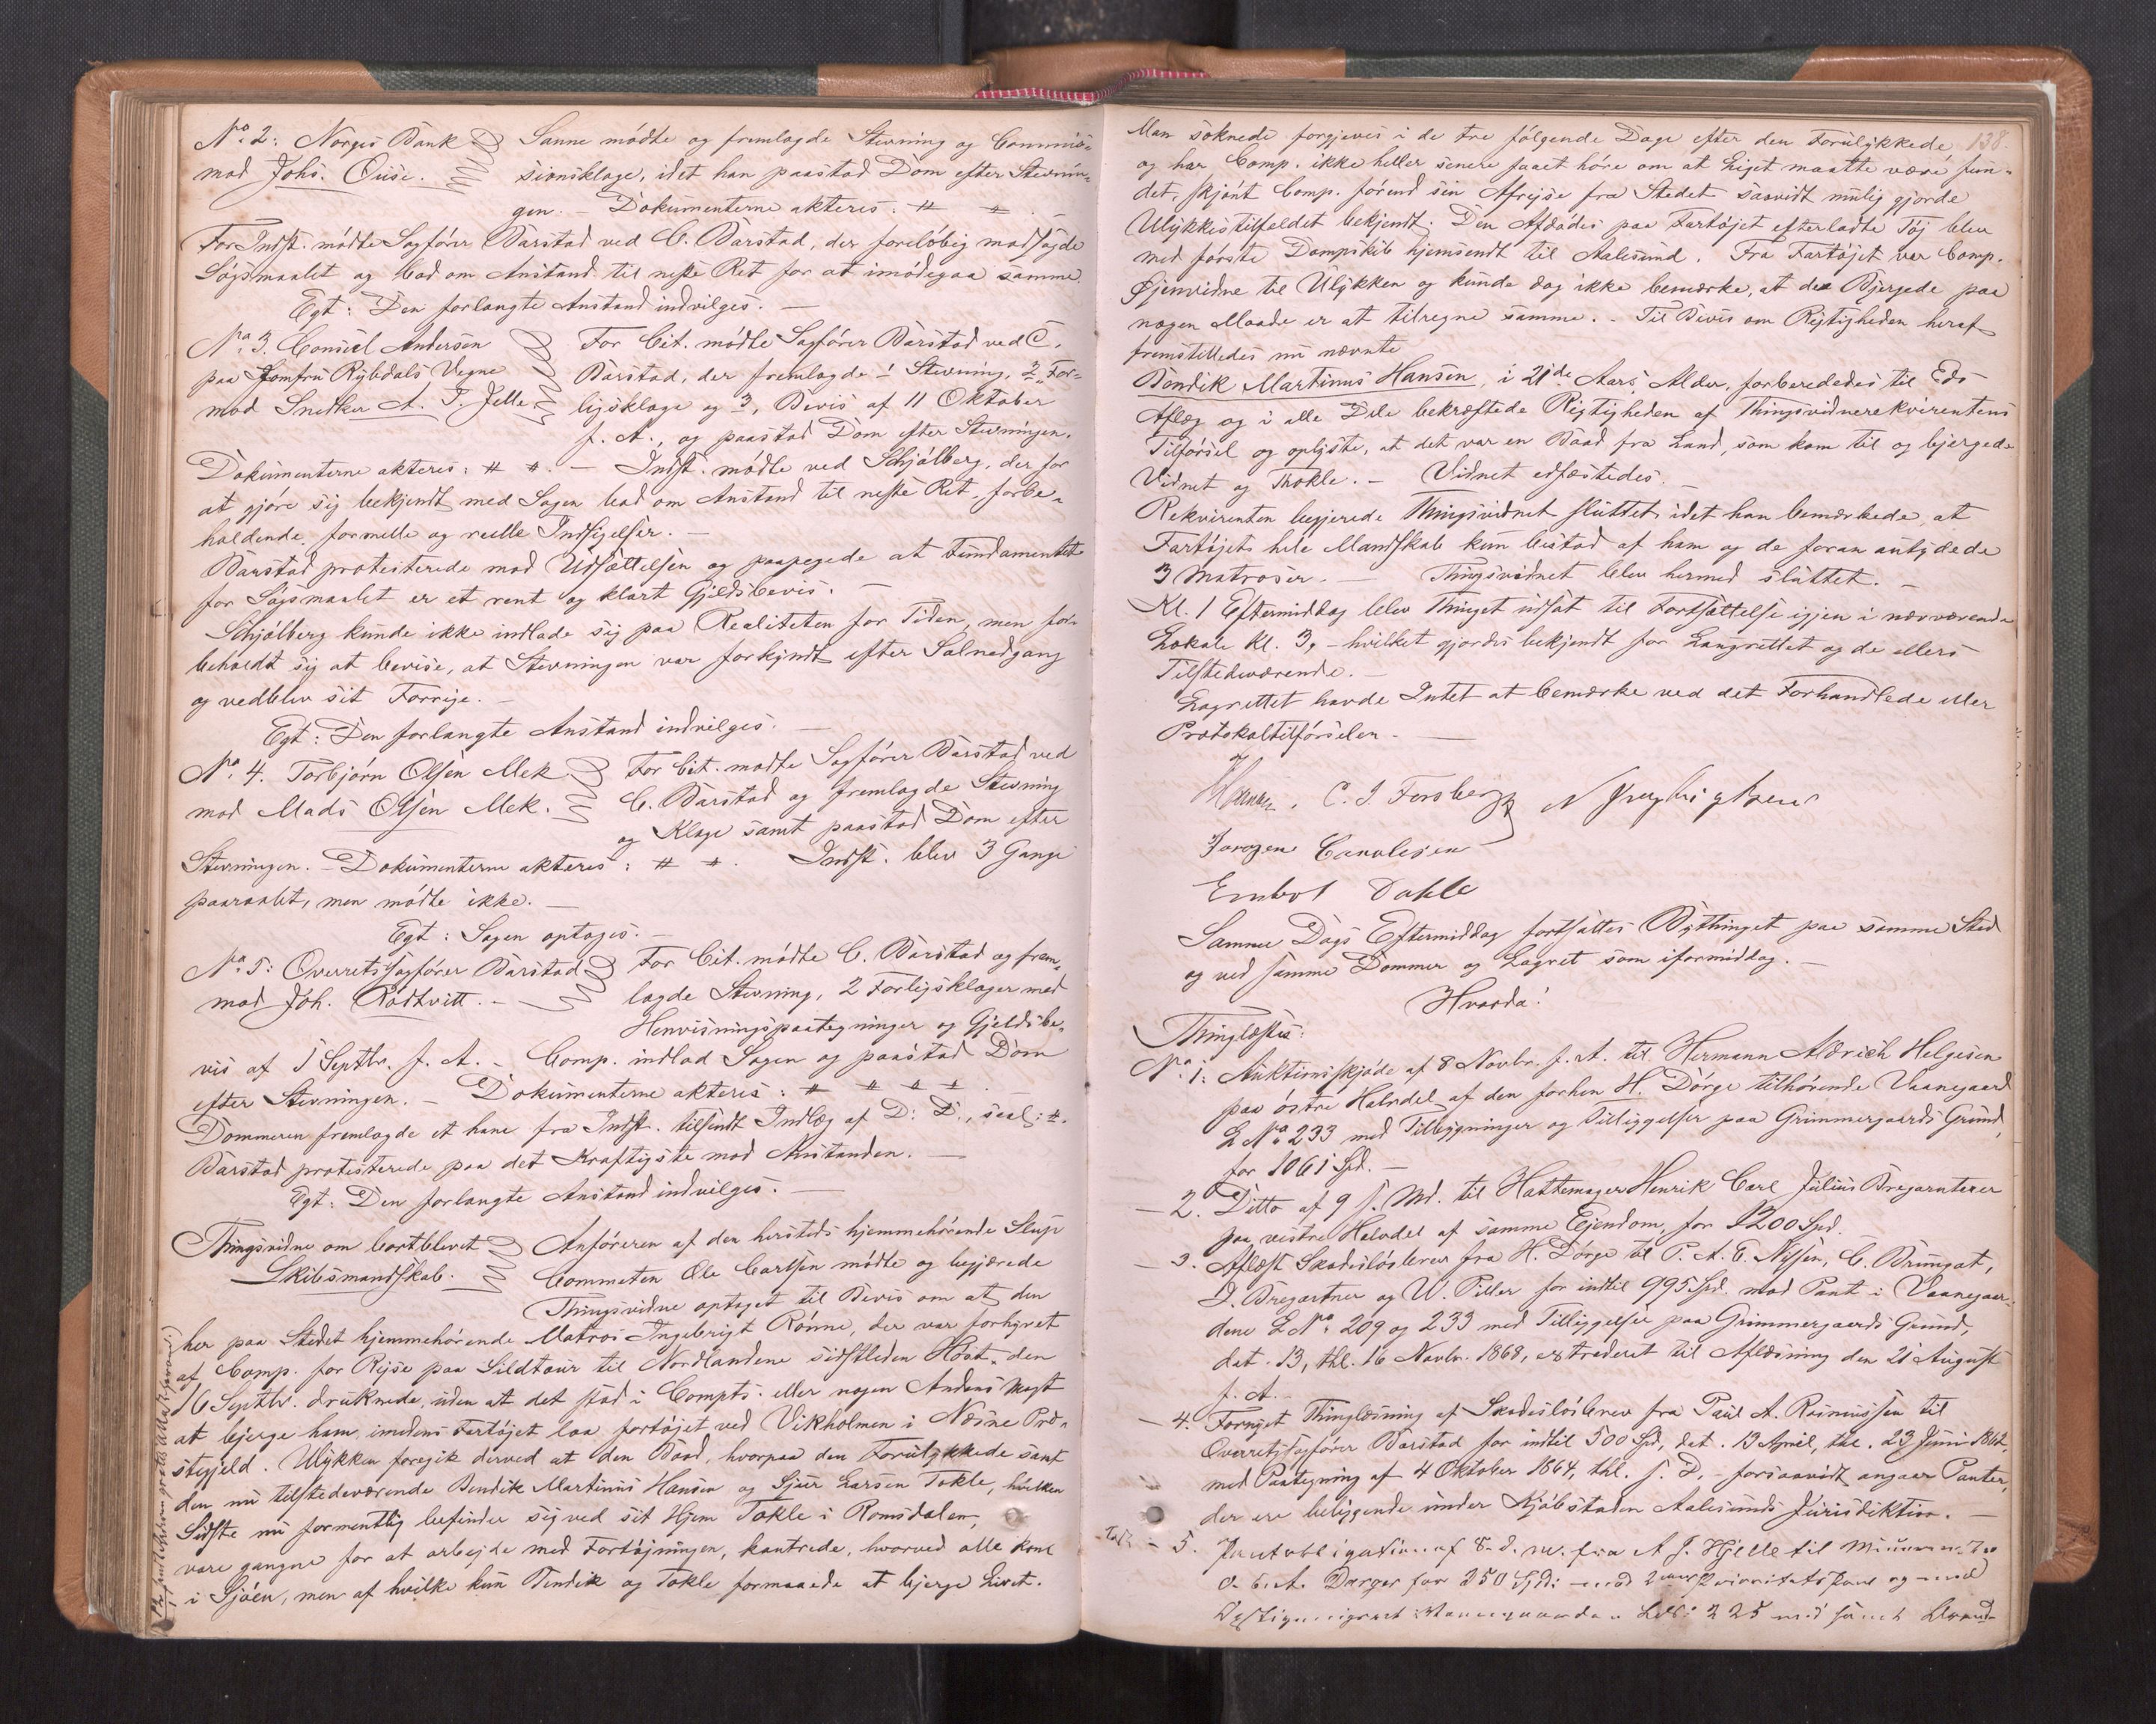 No. 2: Norges Bank
mod Johs. Ouse.
Sanne mödte og fremlagde Stevning og Commis-
sionsklage, idet han paastod Dom efter Stevnin-
gen. - Dokumenterne akteres: # #.
For Indst. mödte Sagförer Barstad ved C. Barstad, der foreløbig modsagde
Sögsmaalet og bad om Anstand til neste Ret for at imödegaa samme.
Egt: Den forlangte Anstand indvilges. -
No. 3. Consul Andersen
paa Jomfru Rybdals Vegne
mod Snedker A. J. Jelle
For Cit. mödte Sagförer Barstad ved C.
Barstad, der fremlagde 1 Stevning, 2, For-
ligsklage og 3, Bevis af 11 Oktober
f. A., og paastod Dom efter Stevningen.
Dokumenterne akteres: # #. - Indst. mödte ved Schjölberg, der for
at gjöre sig bekjendt med Sagen bad om Anstand til neste Ret, forbe-
holdende formelle og reelle Indsigelser. -
Barstad protesterede mod Udsættelsen og paapegede at Fundamentet
for Sögsmaalet er et rent og klart Gjeldsbevis. -
Schjölberg kunde ikke indlade sig paa Realiteten for Tiden, men for-
beholdt sig at bevise, at Stevningen var forkyndt efter Solnedgang
og vedblev sit Forrige. -
Egt: Den forlangte Anstand indvilges. -
No. 4. Torbjörn Olsen Mek
mod Mads Olsen Mek.
For Cit. mödte Sagförer Barstad ved
C. Barstad og fremlagde Stevning
og Klage samt paastod Dom efter
Stevningen. - Dokumenterne akteres: # #. Indst. blev 3 Gange
paaraabt, men mödte ikke. -
Egt: Sagen optages. -
No. 5: Overretssagförer Barstad
mod Joh. Rödtvitt. -
For Cit. mödte C. Barstad og frem-
lagde Stevning, 2 Forligsklager med
Henvisningspaategninger og Gjeldsbe-
vis af 1 Septbr. f. A. - Comp. indlod Sagen og paastod Dom
efter Stevningen. - Dokumenterne akteres: # # # #.
Dommeren fremlagde et ham fra Indst. tilsendt Indlæg af D: D., seal: #.
Barstad protesterede paa det Kraftigste mod Anstanden. -
Egt: Den forlangte Anstand indvilges. -
Thingsvidne om bortblevet
Skibsmandskab.
Anföreren af den hersteds hjemmehörende Slup
Commeten Ole Carlsen mödte og begjærede
Thingsvidne optaget til Bevis om at den
her paa Stedet hjemmehörende Matros Ingebrigt Rönne, der var forhyret
af Comp. for Rejse paa Sildtour til Nordlandene sidstleden Höst, den
16 Septbr. druknede, uden at det stod i Compts. eller nogen Andens Magt
at bjerge ham, imedens Fartöjet laa fortöjet ved Vikholmen i Næsne Præ-
stegjeld. Ulykken foregik derved at den Baad, hvorpaa den Forulykkede samt
den nu tilstedeværende Bendik Martinus Hansen og Sjur Larsen Tokle, hvilken
Sidste nu formentlig befinder sig ved sit Hjem Tokle i Romsdalen,
vare gangne for at arbejde med Fortöjningen, kantrede, hvorved alle kom
i Sjöen, men af hvilke kun Bendik og Tokle formaaede at bjerge Livet.
138.
Man söknede forgjeves i de tre fölgende Dage efter den Forulykkede
og har Comp. ikke heller senere faaet höre om at Liget maatte være fun-
det, skjönt Comp. förend sin Afrejse fra Stedet saavidt mulig gjorde
Ulykkestilfældet bekjendt. Den Afdödes paa Fartöjet efterladte Töj blev
med förste Dampskib hjemsendt til Aalesund. Fra Fartöjet var Comp.
Øjenvidne til Ulykken og kunde dog ikke bemærke, at de Bjergede paa
nogen Maade er at tilregne samme. - Til Bevis om Rigtigheden heraf
fremstilledes nu nævnte
Bendik Martinus Hansen, i 21de Aars Alder, forberededes til Eds
Aflæg og i alle Dele bekræftede Rigtigheden af Thingsvidnerekvirentens
Tilförsel og oplyste, at det var en Baad fra Land, som kom til og bjergede
Vidnet og Tokle. - Vidnet edfæstedes. -
Rekvirenten begjerede Thingsvidnet sluttet, idet han bemærkede, at
Fartöjets hele Mandskab kun bestod af ham og de foran antydede
3 Matroser. - Thingsvidnet blev hermed sluttet. -
Kl. 1 Eftermiddag blev Thinget udsat til Fortsættelse igjen i nærværende
Lokale Kl. 3, - hvilket gjordes bekjendt for Laugrettet og de ellers
Tilstedeværende. -
Lagrettet havde Intet at bemærke ved det Forhandlede eller
Protokoltilförselen. -
C. J. Forsberg
Jørgen Carolesen
Embret Dahle
Samme Dags Eftermiddag fortsattes Bythinget paa samme Sted
og ved samme Dommer og Lagret som iformiddag. -
Hvorda:
Thinglæstes:
No. 1: Auktionsskjöde af 8 Novbr. f. A. til Hermann Aldrich Helgesen
paa östre Halvdel af den forhen H. Dörge tilhörende Vaanegaard
L No. 233 med Tilbygninger og Tilliggelser paa Grimmergaards Grund,
for 1061 Spd. -
- 2. Ditto af 9 s. Md. til Hattemager Henrik Carl Julius Bregarntner
paa vestre Halvdel af samme Ejendom, for 1200 Spd.
- 3. Aflæst Skadeslösbrev fra H. Dörge til P. A. E. Nissen, C. Brungot,
J. Bregartner og W. Piller for indtil 995 Spd. mod Pant i Vaanegaar-
dene L No. 209 og 233 med Tilliggelse paa Grimmergaards Grund,
dat. 13, thl. 16 Novbr. 1868, extraderet til Aflæsning den 21 August
f. A. -
- 4. Fornyet Thinglæsning af Skadeslösbrev fra Paul A. Rasmussen til
Overretssagförer Barstad for indtil 500 Spd, dat. 13 April, thl. 23 Juni 1862,
med Paategning af 4 Oktober 1864, thl. s. D., - forsaavidt angaar Panter,
der ere beliggende under Kjöbstaden Aalesunds Jurisdiktion. -
- 5. Pantobligation af d. m. fra A J. Hjelle til
Dærger for 250 Spd: mod 2 Prioritets Pant og med
L No: 225 med